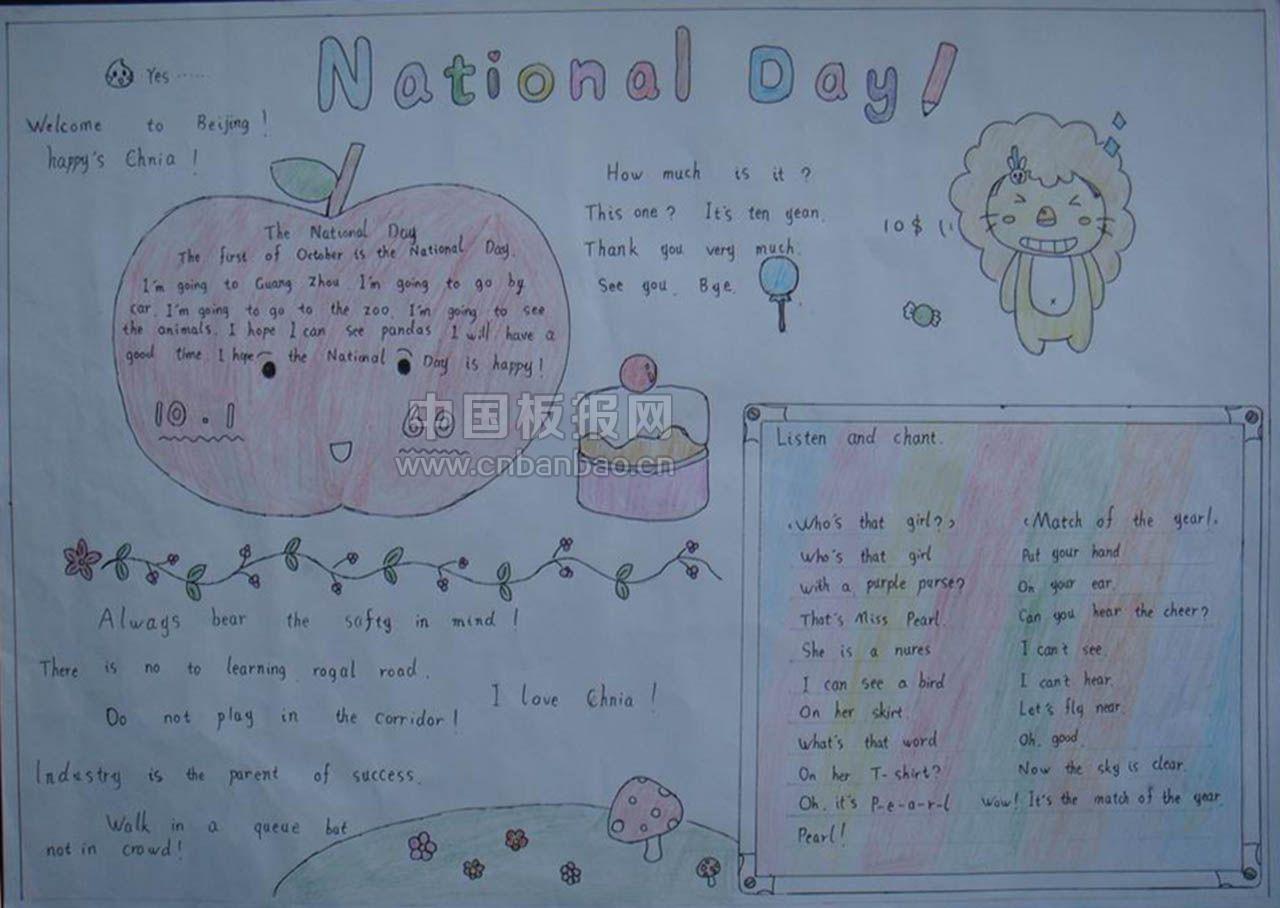 National Day!
Yes ······
Welcome to Beijing!
happy's Chnia!
The National Day
The first of October is the National Day.
I'm going to Guang Zhou I'm going to go by
car. I'm going to go to the zoo. I'm going to see
the animals. I hope I can see pandas I will have a
good time. I hope the National Day is happy!
10.1
60
How much is it?
This one? It's ten yean.
Thank you very much.
See you. Bye.
10$
中国板报网
www.cnbanbao.cn
Always bear the safty in mind!
There is no to learning rogal road.
I love Chnia!
Do not play in the corridor!
Industry is the parent of success.
Walk in a queue bat
not in crowd!
Listen and chant.
<Who's that girl?>
Who's that girl
with a purple purse?
That's Miss Pearl.
She is a nures
I can see a bird
On her skirt.
What's that word
On her T-shirt?
Oh, it's P-e-a-r-l
Pearl!
<Match of the year>.
Put your hand
On your ear.
Can you hear the cheer?
I can't see.
I can't hear.
Let's fly near.
Oh, good.
Now the sky is clear.
Wow! It's the match of the year.